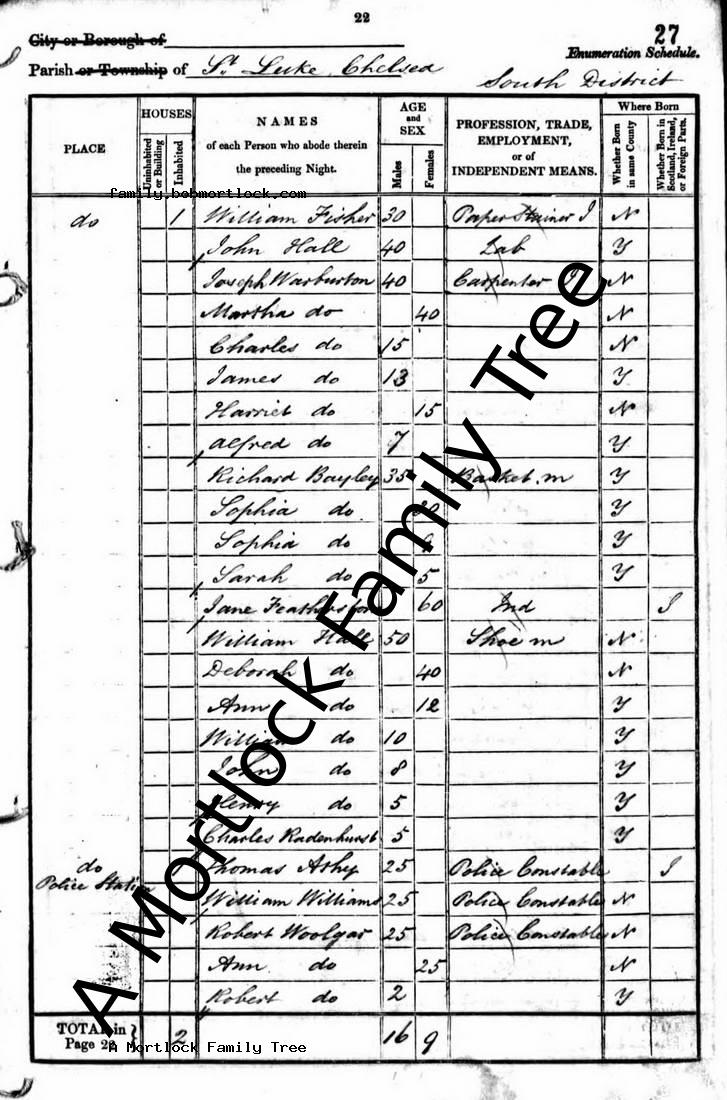 22
27
City or Borough of
Enumeration Schedule.
Parish or Township of St Luke Chelsea South District
PLACE
HOUSES
Uninhabited or Building
Inhabited
NAMES
of each Person who abode therein
the preceding Night.
AGE
and
SEX
Males
Females
PROFESSION, TRADE,
EMPLOYMENT,
or of
INDEPENDENT MEANS.
Where Born
Whether Born in same County
Whether Born in Scotland, Ireland, or Foreign Parts.
family.bobmortlock.com
do 1 William Fisher 30 Paper Stainer J N
John Hall 40 Lab Y
Joseph Warburton 40 Carpenter N
Martha do 40 N
Charles do 15 N
James do 13 Y
Harriet do 15 N
Alfred do 7 Y
Richard Bayley 35 Basket m Y
Sophia do Y
Sophia do Y
Sarah do 5 Y
Jane Featherston 60 Ind I
William Hall 50 Shoe m N
Deborah do 40 N
Ann do 12 Y
William do 10 Y
John do 8 Y
Henry do 5 Y
Charles Radenhurst 5 Y
do Police Station Thomas Athy 25 Police Constable I
William Williams 25 Police Constable N
Robert Woolgar 25 Police Constable N
Ann do 25 N
Robert do 2 Y
TOTAL in
Page 22 2 16 9
A Mortlock Family Tree
A Mortlock Family Tree